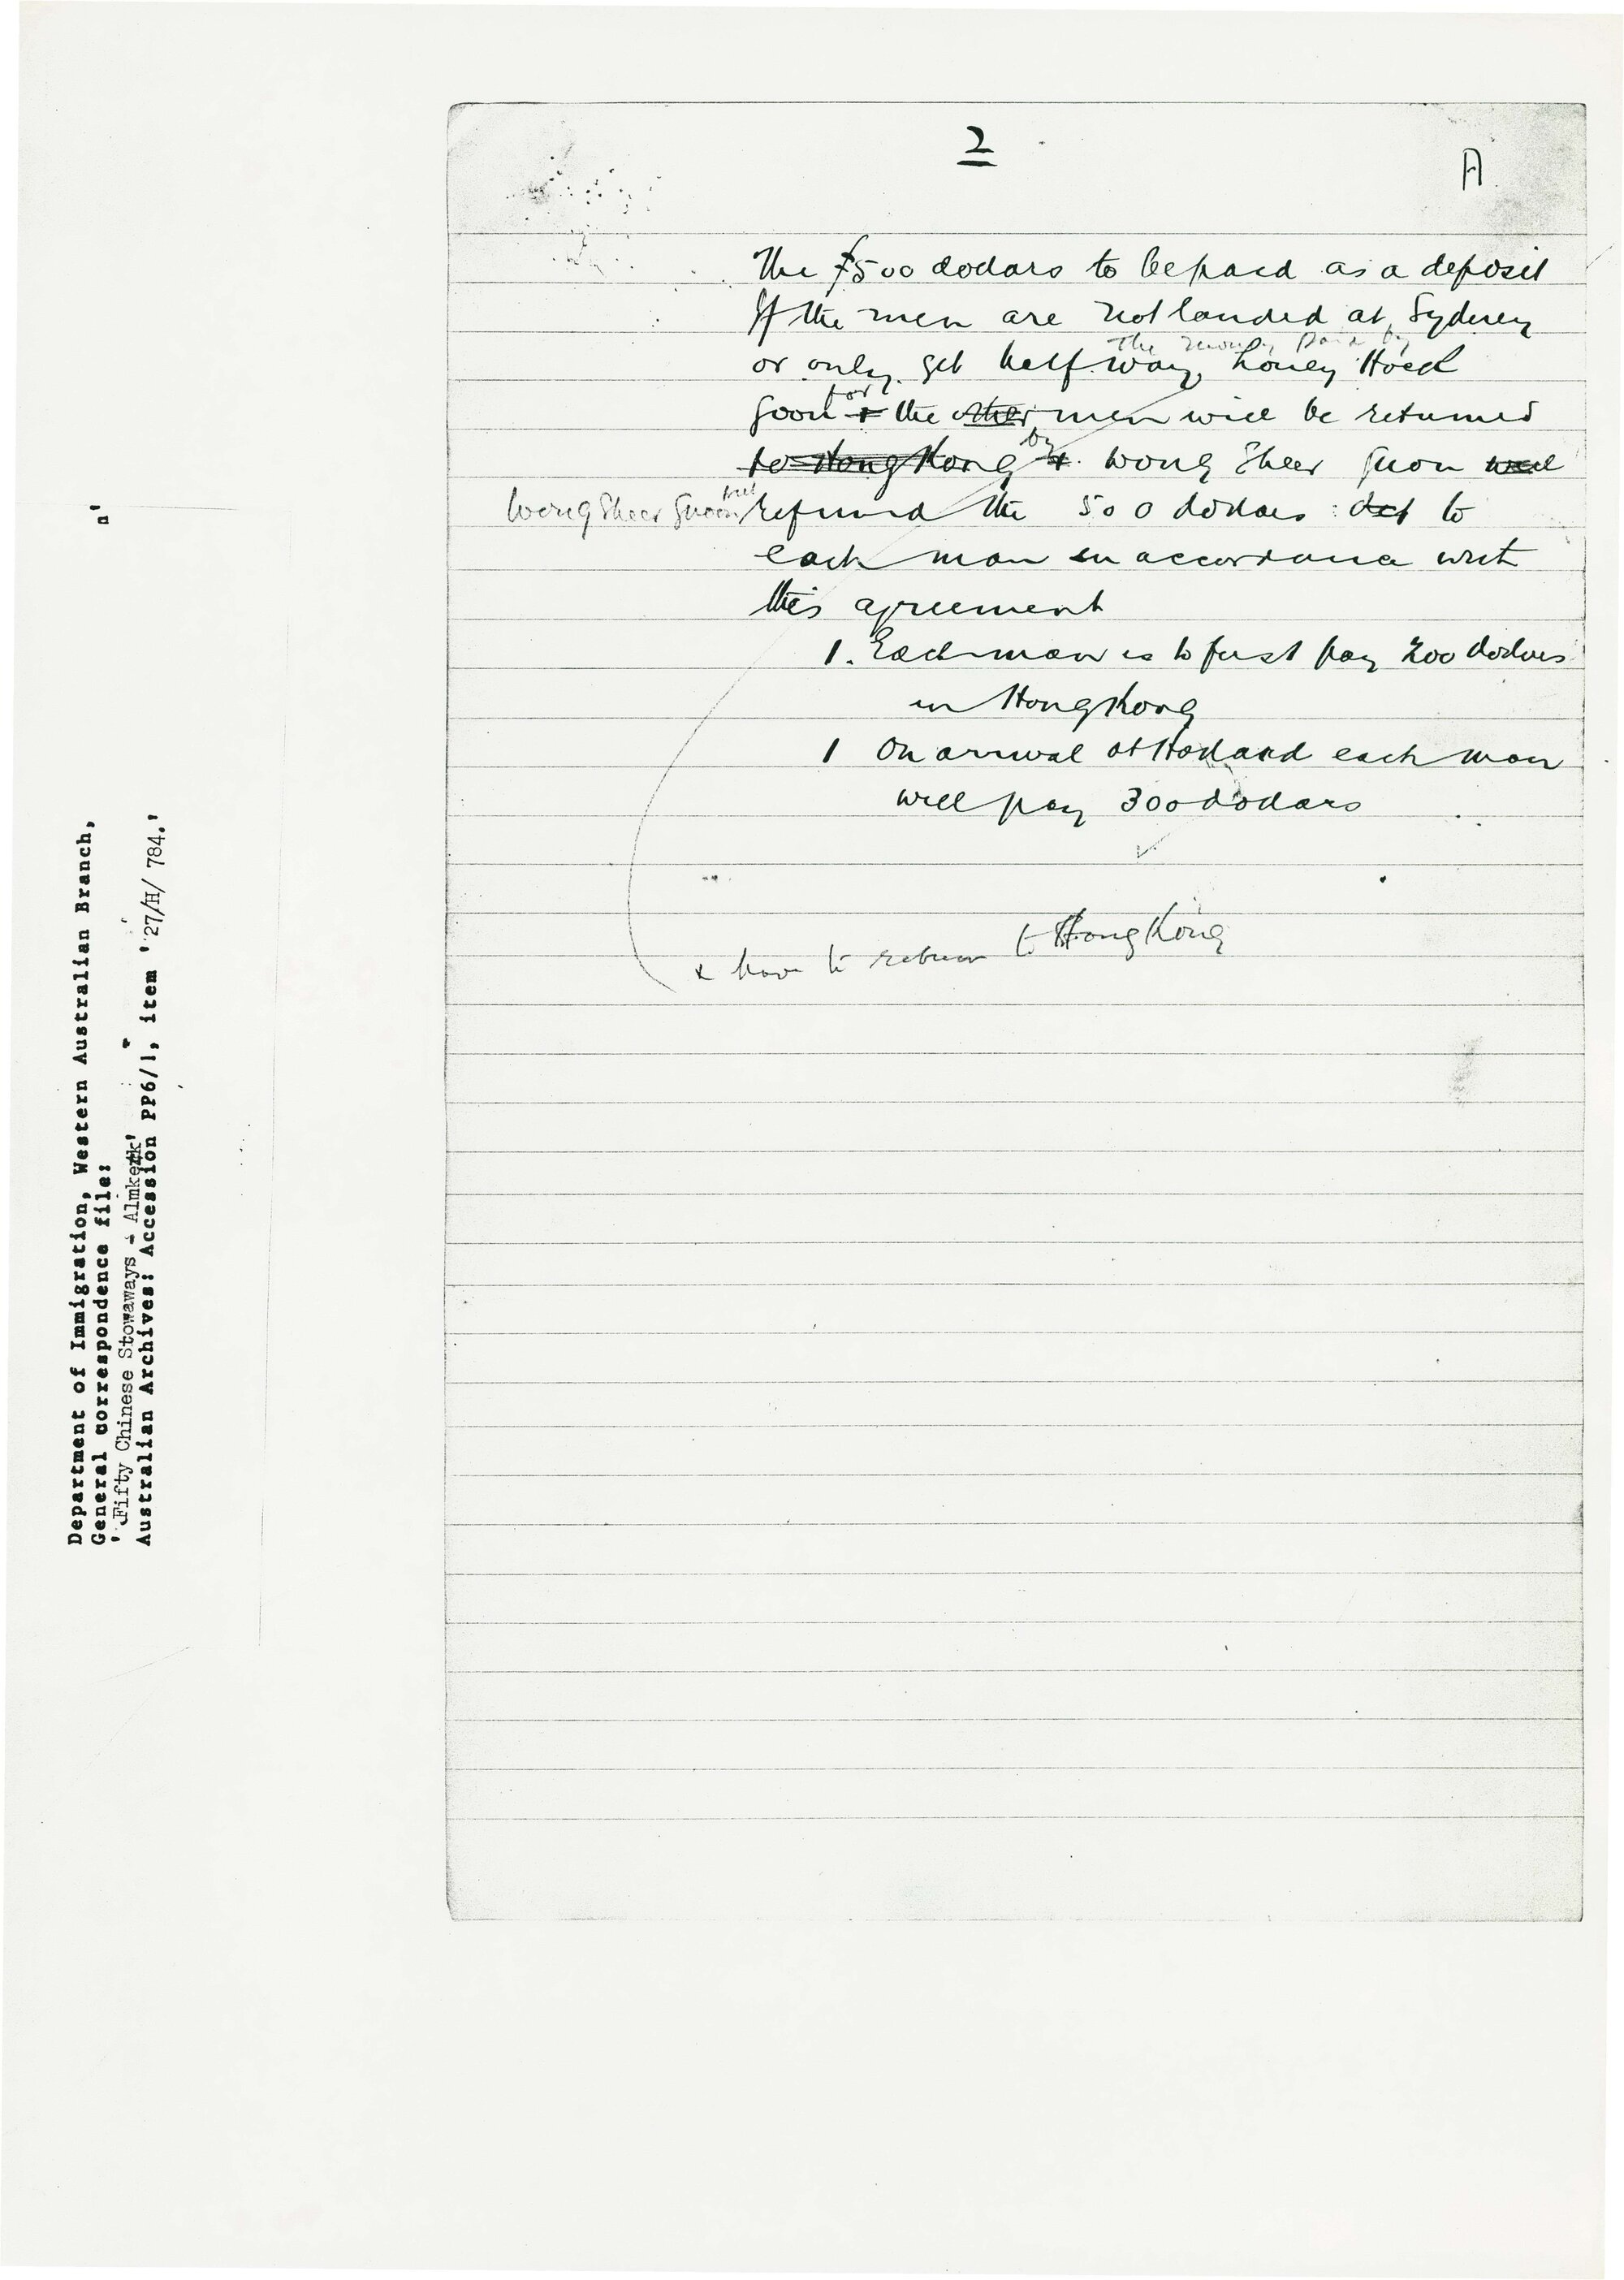 2
A
The £500 dollars to be paid as a deposit
If the men are not landed at Sydney
the money paid by
or only get half way, Loney Hock
for
Goon + the other men will be returned
by
to Hong Kong + Wong Sheer Guon will
Wong Sheer Guon will refund the 500 dollars to
each man in accordance with
this agreement
1. Each man is to first pay 200 dollars
in Hong Kong
1 On arrival at Holland each man
will pay 300 dollars
& have to return to Hong Kong
a'
Department of Immigration, Western Australian Branch,
General correspondence file:
'Fifty Chinese Stowaways - Almkerk'
Australian Archives: Accession PP6/1, item '27/H/784.'